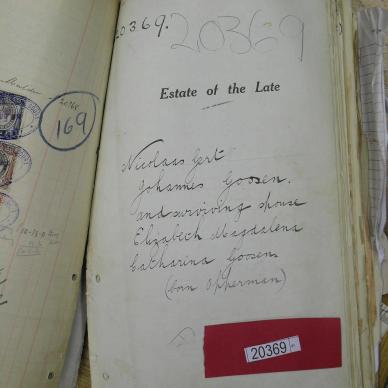 20369.
20369
Estate of the Late
Nicolaas Gert
Johannes Goosen.
and surviving spouse
Elizabeth Magdalena
Catharina Goosen
(born Opperman)
20369
169